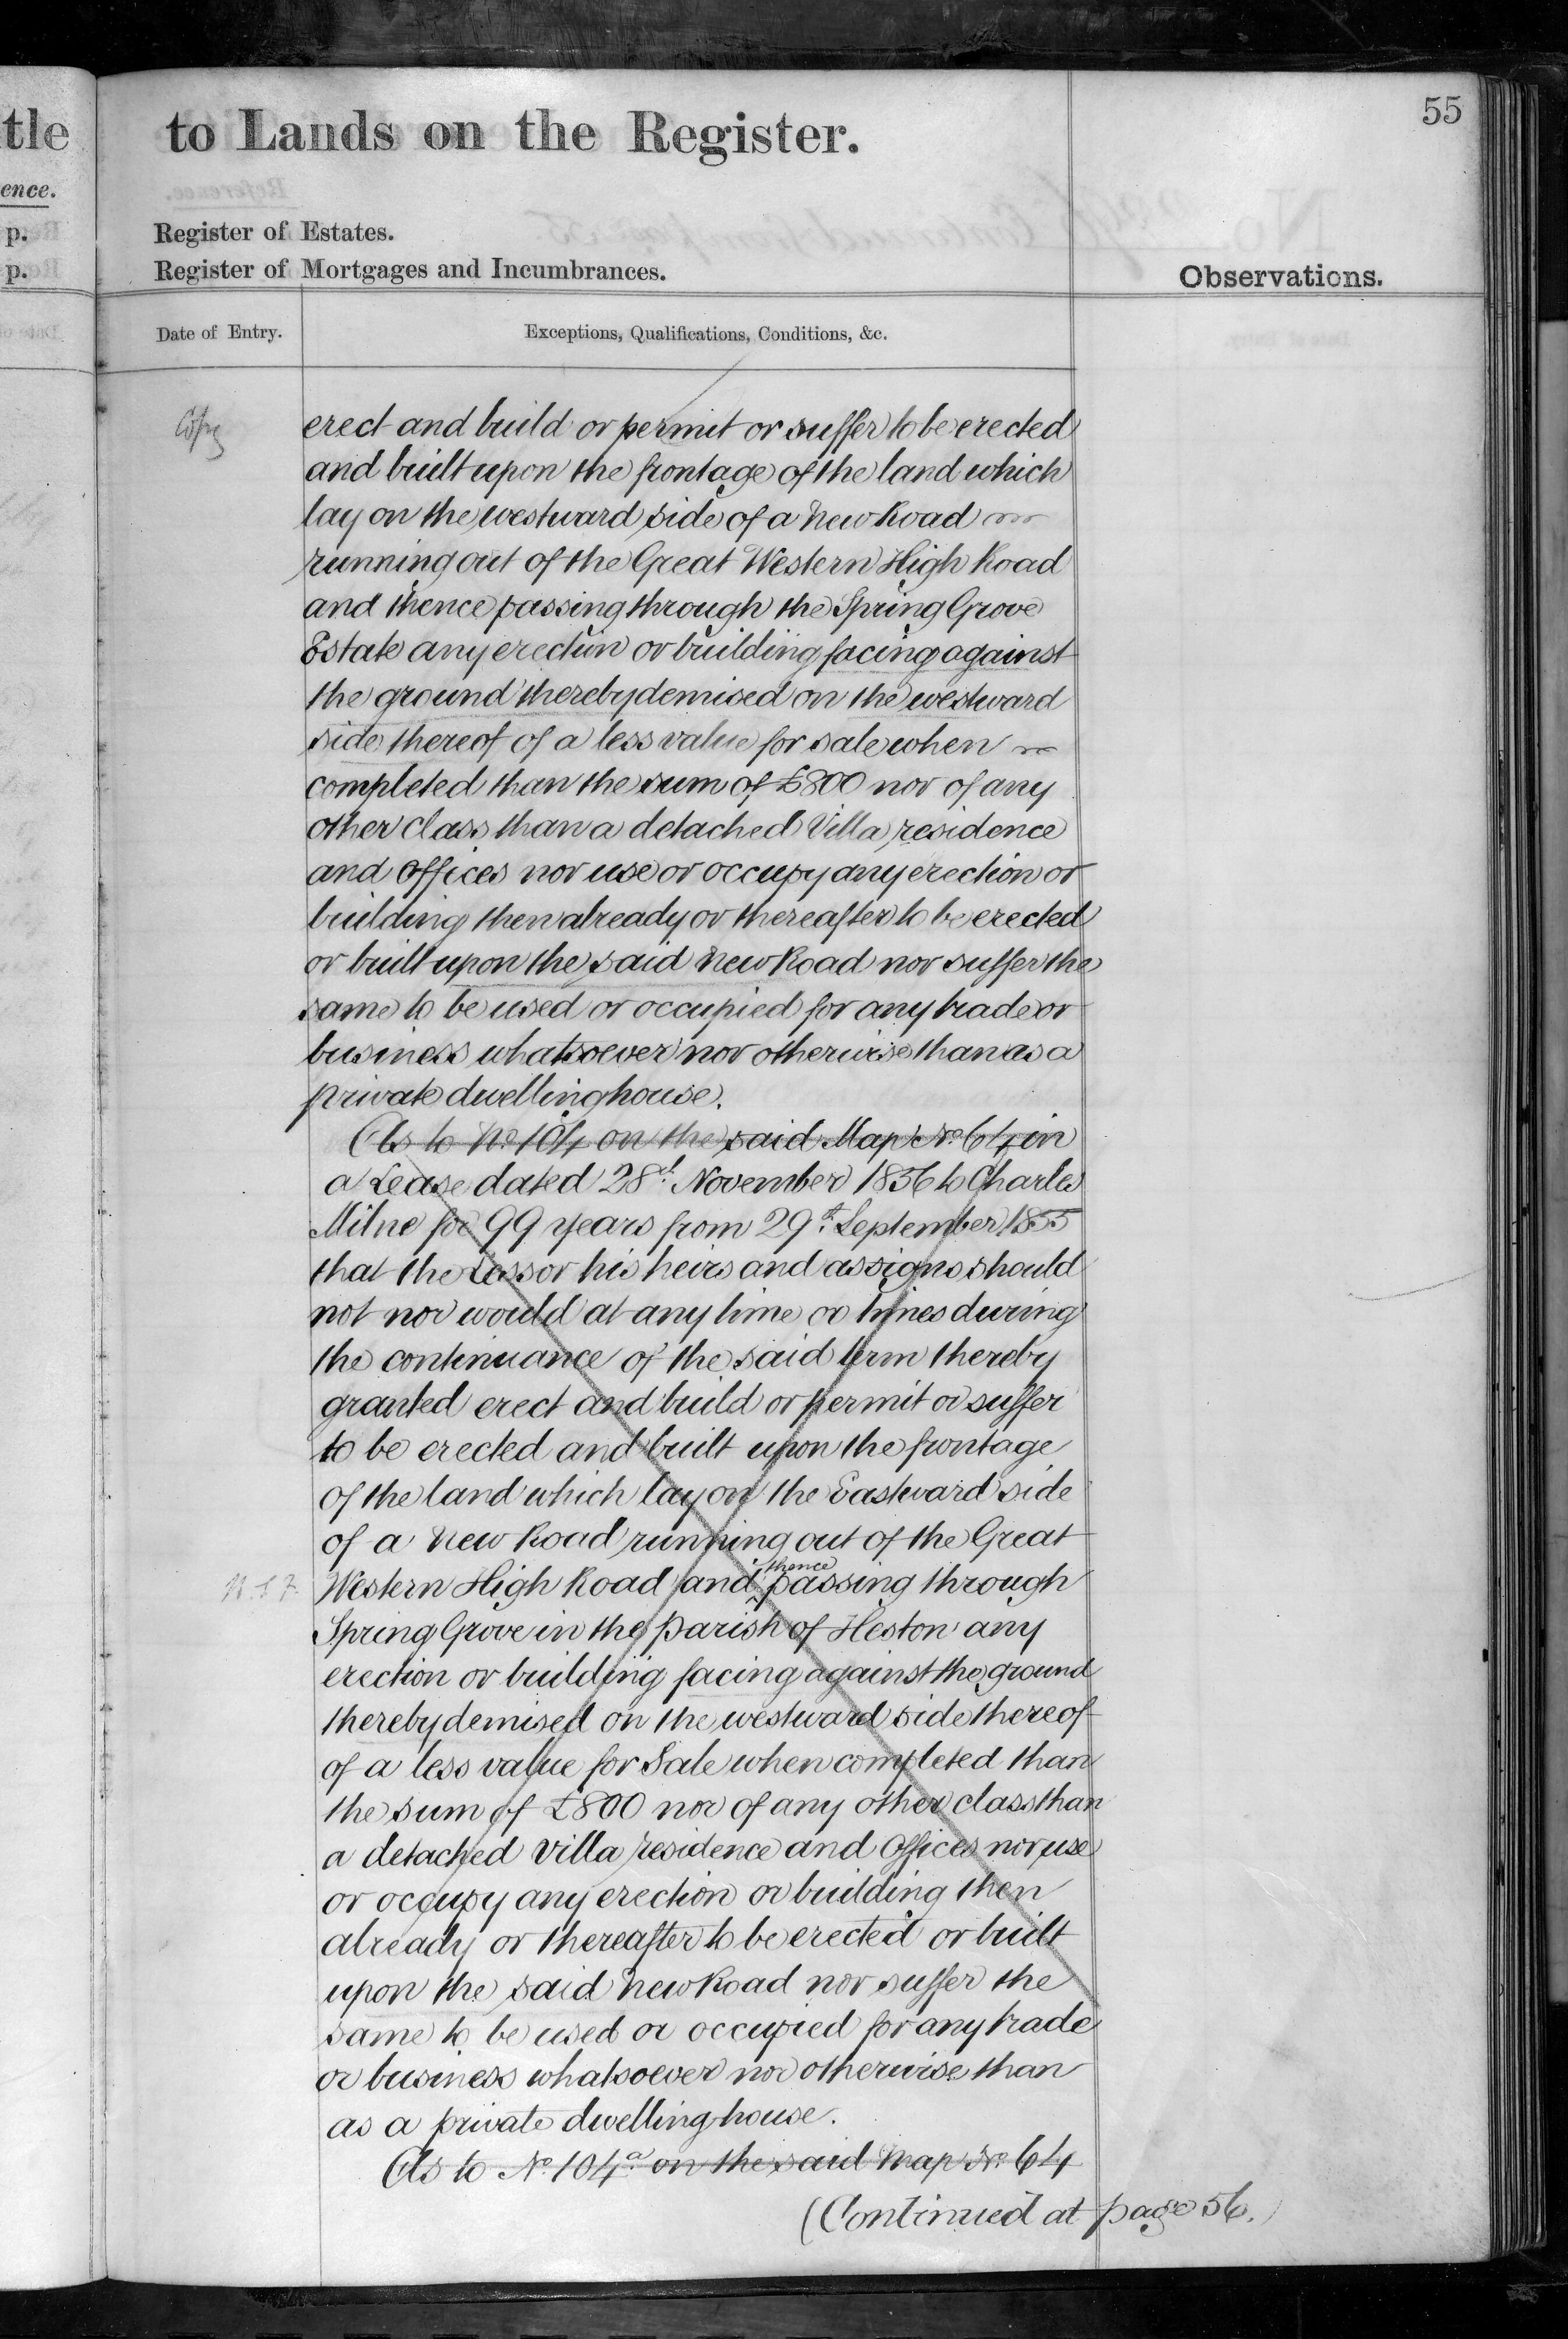 tle
to Lands on the Register.
55
ence.
p.
Register of Estates.
p.
Register of Mortgages and Incumbrances.
Observations.
Date of Entry.
Exceptions, Qualifications, Conditions, &c.
Copy
erect and build or permit or suffer to be erected
and built upon the frontage of the land which
lay on the westward side of a New Road
running out of the Great Western High Road
and thence passing through the Spring Grove
Estate any erection or building facing against
the ground thereby demised on the westward
side thereof of a less value for sale when
completed than the sum of £800 nor of any
other class than a detached Villa residence
and Offices nor use or occupy any erection or
building then already or thereafter to be erected
or built upon the said New Road nor suffer the
same to be used or occupied for any trade or
business whatsoever nor otherwise than as a
private dwellinghouse.
As to No. 104 on the said Map No. 64 in
a Lease dated 28th November 1856 to Charles
Milne for 99 years from 29th September 1855
that the Lessor his heirs and assigns should
not nor would at any time or times during
the continuance of the said term thereby
granted erect and build or permit or suffer
to be erected and built upon the frontage
of the land which lay on the Eastward side
of a New Road running out of the Great
Western High Road and thence passing through
Spring Grove in the parish of Heston any
erection or building facing against the ground
thereby demised on the westward side thereof
of a less value for Sale when completed than
the sum of £800 nor of any other class than
a detached Villa residence and Offices nor use
or occupy any erection or building then
already or thereafter to be erected or built
upon the said New Road nor suffer the
same to be used or occupied for any trade
or business whatsoever nor otherwise than
as a private dwellinghouse.
As to No. 104a on the said Map No. 64
(Continued at page 56.)